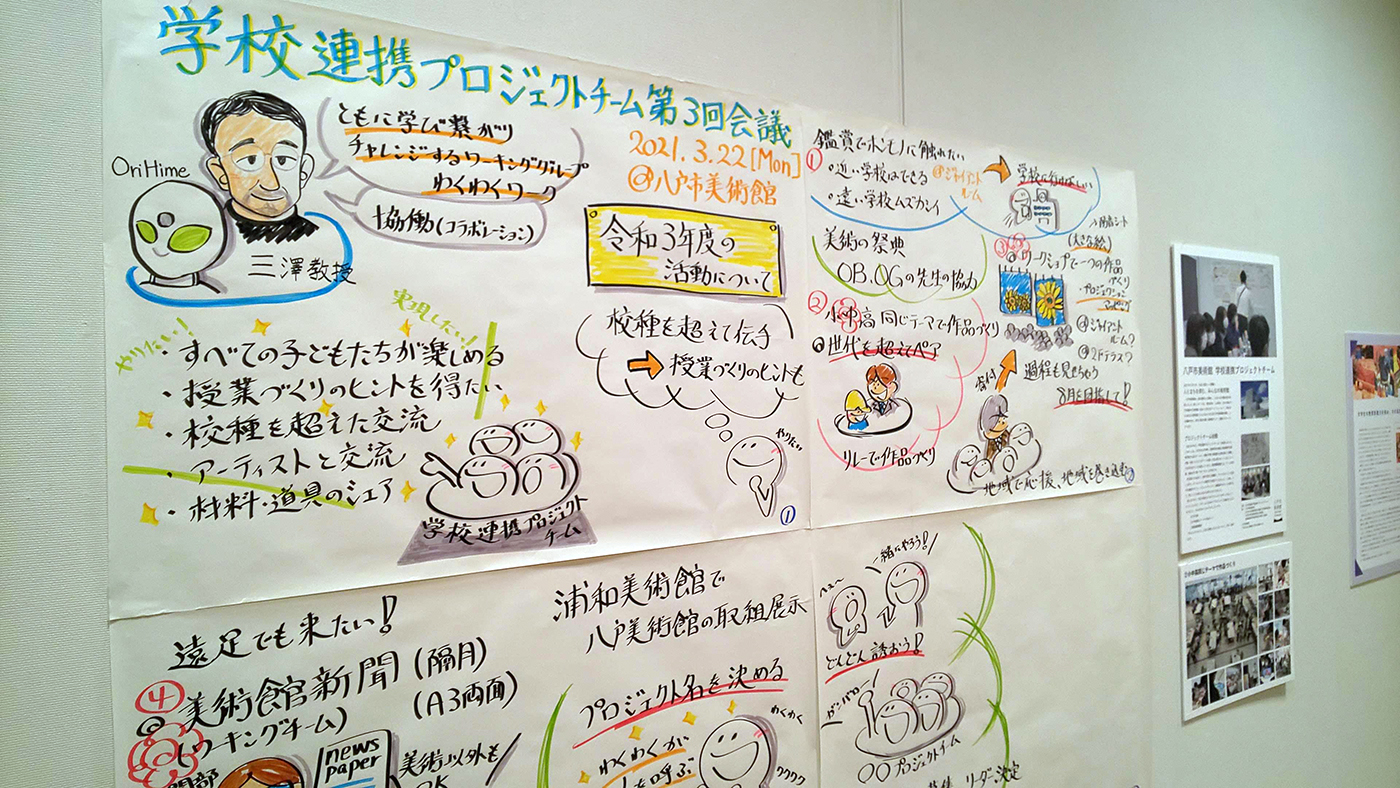 学校連携プロジェクトチーム第3回会議
2021.3.22[Mon]
@八戸市美術館
OriHime
三澤教授
ともに学び繋がり
チャレンジするワーキンググループ
わくわくワーク
協働(コラボレーション)
令和3年度の
活動について
やりたい!
実現したい!
・すべての子どもたちが楽しめる
・授業づくりのヒントを得たい
・校種を超えた交流
・アーティストと交流
・材料・道具のシェア
学校連携プロジェクト
チーム
校種を超えて伝手
授業づくりのヒントも
やりたい
①
鑑賞でホンモノに触れたい
①
・近い学校はできる
@ジャイアント
ルーム
・遠い学校ムズカシイ
学校に行けばいい
美術の祭典
OB.OGの先生の協力
②
小中高 同じテーマで作品づくり
世代を超えてペア
リレーで作品づくり
③
ワークショップで一つの作品
づくり
(大きな絵)
・プロジェクション
マッピング
@ジャイアント
ルーム?
@2Fテラス?
過程も見せちゃう
8月を目指して!
地域で応援、地域を巻き込む
②
遠足でも来たい!
④
美術館新聞(隔月)
(A3両面)
(ワーキングチーム)
news
paper
美術以外も
OK
浦和美術館で
八戸美術館の取組展示
プロジェクト名を決める
わくわくが
を呼ぶ
わくわく
ワクワク
一緒にやろう!
へぇ〜
どんどん誘おう!
ガンバロー!
〇〇プロジェクトチーム
リーダー決定
八戸市美術館 学校連携プロジェクトチーム